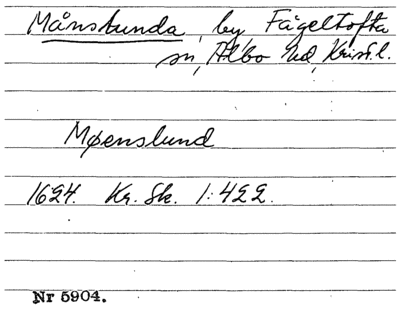 Månstunda, by, Fågeltofta
sn, Albo hd, Krist. l.
Møenslund
1624. Kr. Sk. 1:422.
Nr 5904.